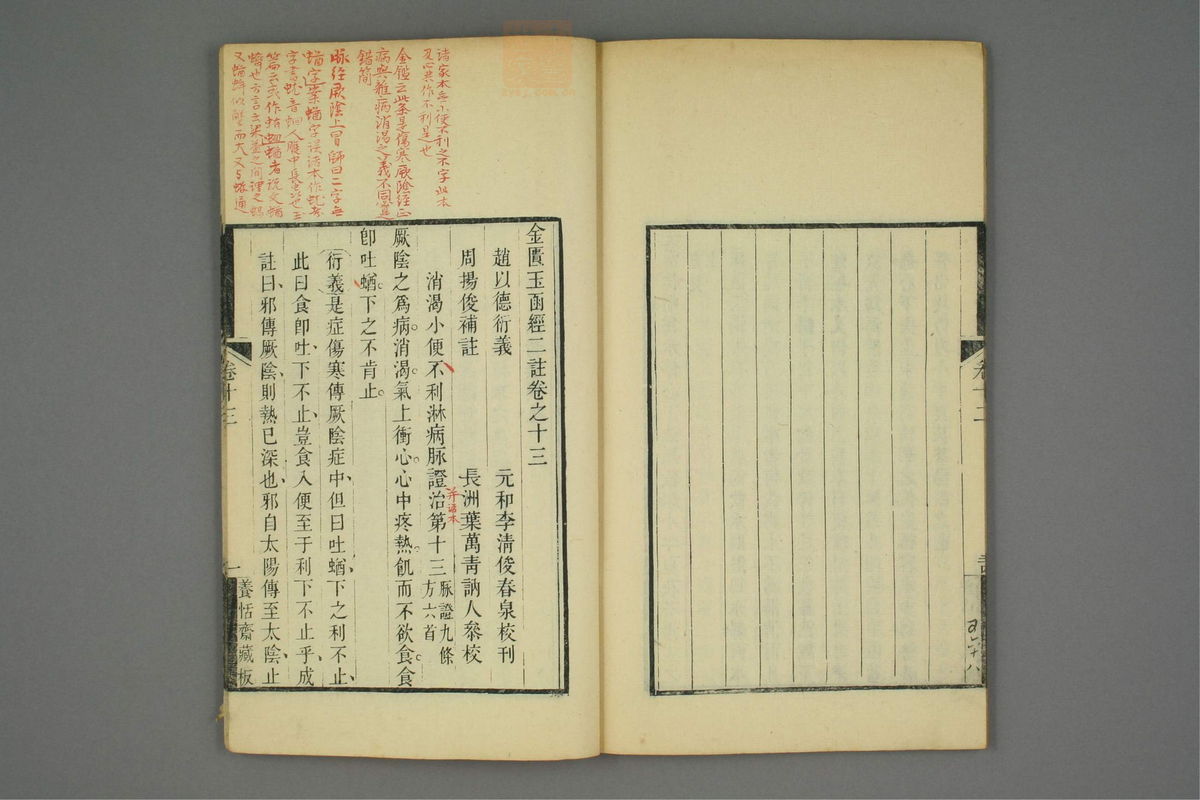 金匱玉函經二註卷之十三
趙以德衍義　元和李清俊春泉校刊
周揚俊補註　長洲葉萬青訥人叅校
消渴小便不利淋病脈證治第十三 脉證九條 方六首
厥陰之爲病消渴氣上衝心心中疼熱飢而不欲食食
卽吐蛕下之不肯止
衍義是症傷寒傳厥陰症中但曰吐蛕下之利不止
此曰食卽吐下不止豈食入便至于利下不止乎成
註曰邪傳厥陰則熱已深也邪自太陽傳至太陰止
卷十三
一
養恬齋藏板
諸家本無小便不利之不字此本
及心典作不利是也
金鑑云此條是傷寒厥陰經正
病與雜病消渴之義不同是
錯簡
脉經厥陰上冒師曰二字無
蛕字
字書蚘音蛔人腹中長虫也
又
卷十二